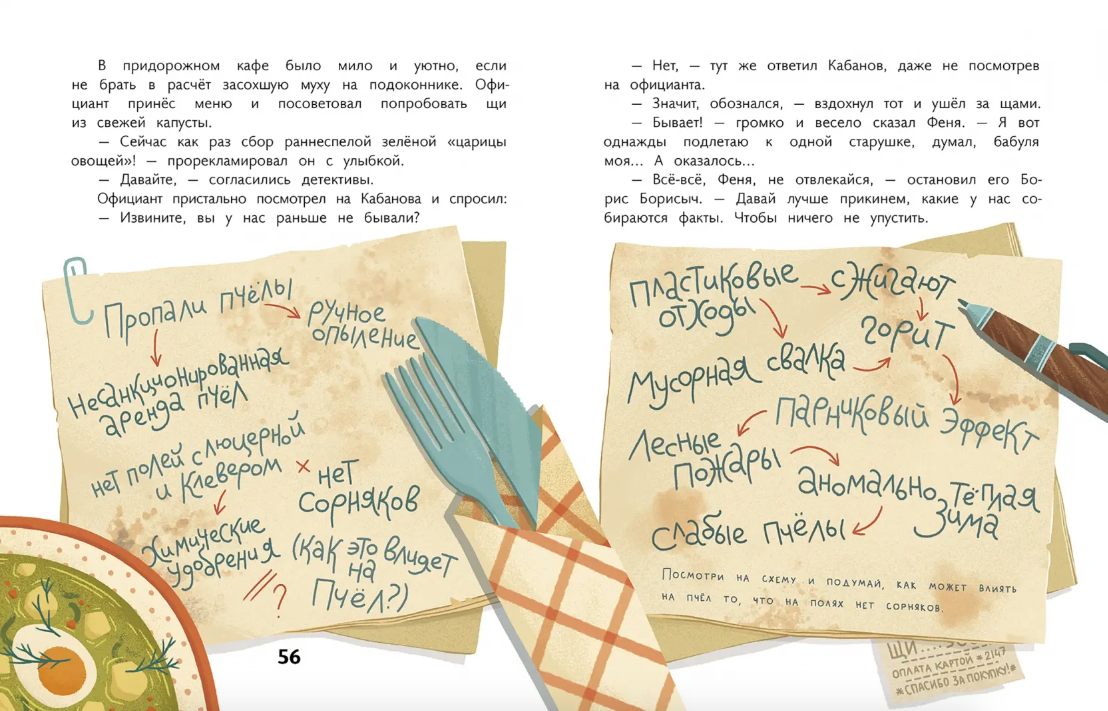 В придорожном кафе было мило и уютно, если
не брать в расчёт засохшую муху на подоконнике. Офи-
циант принёс меню и посоветовал попробовать щи
из свежей капусты.
— Сейчас как раз сбор раннеспелой зелёной «царицы
овощей»! — прорекламировал он с улыбкой.
— Давайте, — согласились детективы.
Официант пристально посмотрел на Кабанова и спросил:
— Извините, вы у нас раньше не бывали?
Пропали пчёлы
ручное
опыление
Несанкционированная
аренда пчёл
нет полей с люцерной
и клевером
нет
сорняков
Химические
удобрения
(как это влияет
на
пчёл?)
?
56
— Нет, — тут же ответил Кабанов, даже не посмотрев
на официанта.
— Значит, обознался, — вздохнул тот и ушёл за щами.
— Бывает! — громко и весело сказал Феня. — Я вот
однажды подлетаю к одной старушке, думал, бабуля
моя... А оказалось...
— Всё-всё, Феня, не отвлекайся, — остановил его Бо-
рис Борисыч. — Давай лучше прикинем, какие у нас со-
бираются факты. Чтобы ничего не упустить.
Пластиковые
отходы
сжигают
горит
Мусорная свалка
парниковый эффект
Лесные
пожары
аномально тёплая
зима
слабые пчёлы
Посмотри на схему и подумай, как может влиять
на пчёл то, что на полях нет сорняков.
ЩИ....
ОПЛАТА КАРТОЙ *2147
*СПАСИБО ЗА ПОКУПКУ!*